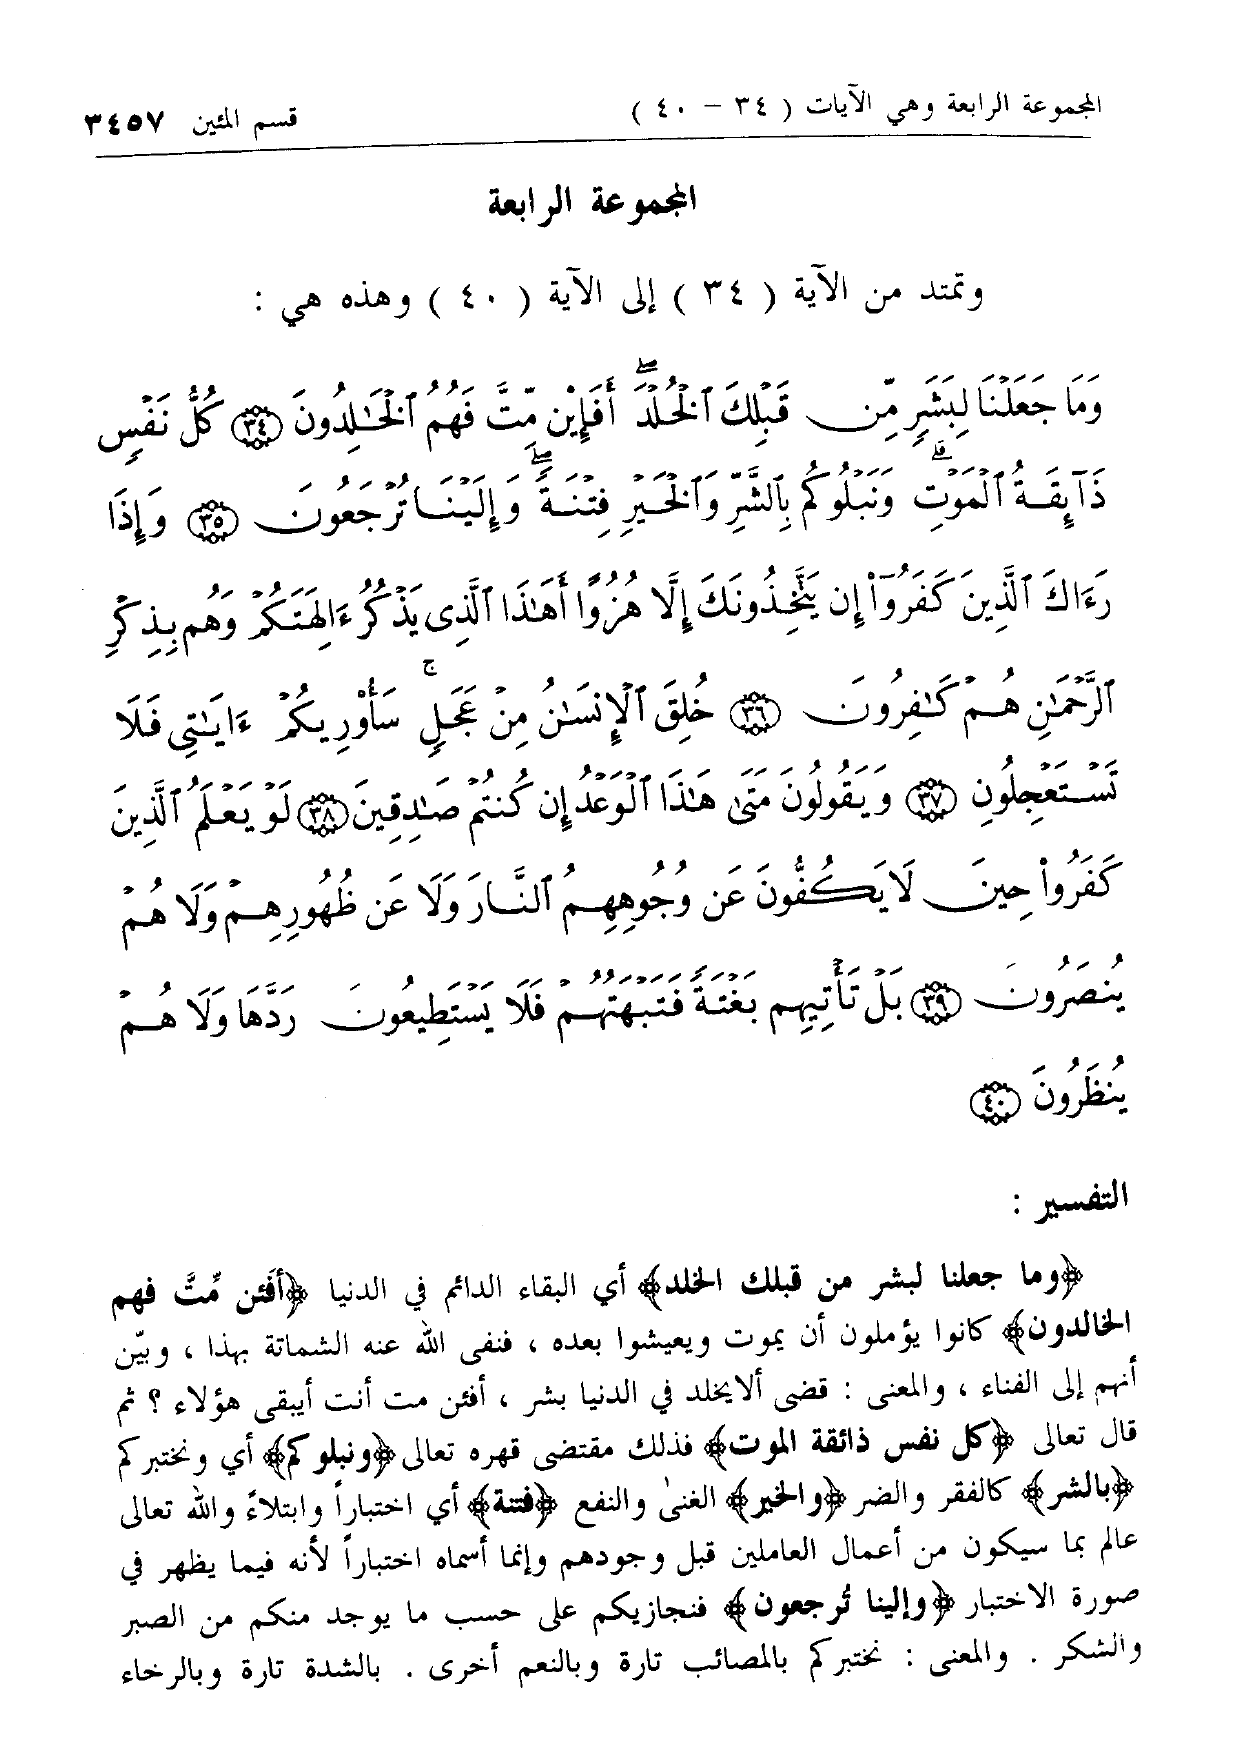 المجموعة الرابعة وهي الآيات ( ٣٤ – ٤٠ ) قسم المئين ٣٤٥٧
المجموعة الرابعة
وتمتد من الآية ( ٣٤ ) إلى الآية ( ٤٠ ) وهذه هي :
وَمَا جَعَلْنَا لِبَشَرٍ مِّن قَبْلِكَ ٱلْخُلْدَ ۖ أَفَإِيْن مِّتَّ فَهُمُ ٱلْخَٰلِدُونَ ﴿٣٤﴾ كُلُّ نَفْسٍ
ذَآئِقَةُ ٱلْمَوْتِ ۗ وَنَبْلُوكُم بِٱلشَّرِّ وَٱلْخَيْرِ فِتْنَةً ۖ وَإِلَيْنَا تُرْجَعُونَ ﴿٣٥﴾ وَإِذَا
رَءَاكَ ٱلَّذِينَ كَفَرُوٓا۟ إِن يَتَّخِذُونَكَ إِلَّا هُزُوًا أَهَٰذَا ٱلَّذِى يَذْكُرُ ءَالِهَتَكُمْ وَهُم بِذِكْرِ
ٱلرَّحْمَٰنِ هُمْ كَٰفِرُونَ ﴿٣٦﴾ خُلِقَ ٱلْإِنسَٰنُ مِنْ عَجَلٍ ۚ سَأُو۟رِيكُمْ ءَايَٰتِى فَلَا
تَسْتَعْجِلُونِ ﴿٣٧﴾ وَيَقُولُونَ مَتَىٰ هَٰذَا ٱلْوَعْدُ إِن كُنتُمْ صَٰدِقِينَ ﴿٣٨﴾ لَوْ يَعْلَمُ ٱلَّذِينَ
كَفَرُوا۟ حِينَ لَا يَكُفُّونَ عَن وُجُوهِهِمُ ٱلنَّارَ وَلَا عَن ظُهُورِهِمْ وَلَا هُمْ
يُنصَرُونَ ﴿٣٩﴾ بَلْ تَأْتِيهِم بَغْتَةً فَتَبْهَتُهُمْ فَلَا يَسْتَطِيعُونَ رَدَّهَا وَلَا هُمْ
يُنظَرُونَ ﴿٤٠﴾
التفسير :
﴿وما جعلنا لبشر من قبلك الخلد﴾ أي البقاء الدائم في الدنيا ﴿أفَئن مِّتَّ فهم
الخالدون﴾ كانوا يؤملون أن يموت ويعيشوا بعده ، فنفى الله عنه الشماتة بهذا ، وبيّن
أنهم إلى الفناء ، والمعنى : قضى ألا يخلد في الدنيا بشر ، أفئن مت أنت أيبقى هؤلاء ؟ ثم
قال تعالى ﴿كل نفس ذائقة الموت﴾ فذلك مقتضى قهره تعالى ﴿ونبلوكم﴾ أي ونختبركم
﴿بالشر﴾ كالفقر والضر ﴿والخير﴾ الغنىٰ والنفع ﴿فتنة﴾ أي اختباراً وابتلاءً والله تعالى
عالم بما سيكون من أعمال العاملين قبل وجودهم وإنما أسماه اختباراً لأنه فيما يظهر في
صورة الاختبار ﴿وإلينا تُرجعون﴾ فنجازيكم على حسب ما يوجد منكم من الصبر
والشكر . والمعنى : نختبركم بالمصائب تارة وبالنعم أخرى . بالشدة تارة وبالرخاء